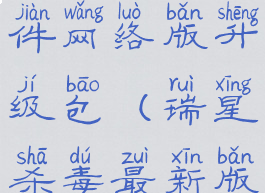 jiàn wǎng luò bǎn shēng
件网络版升
jí bāo ruì xīng
级包（瑞星
shā dú zuì xīn bǎn
杀毒最新版